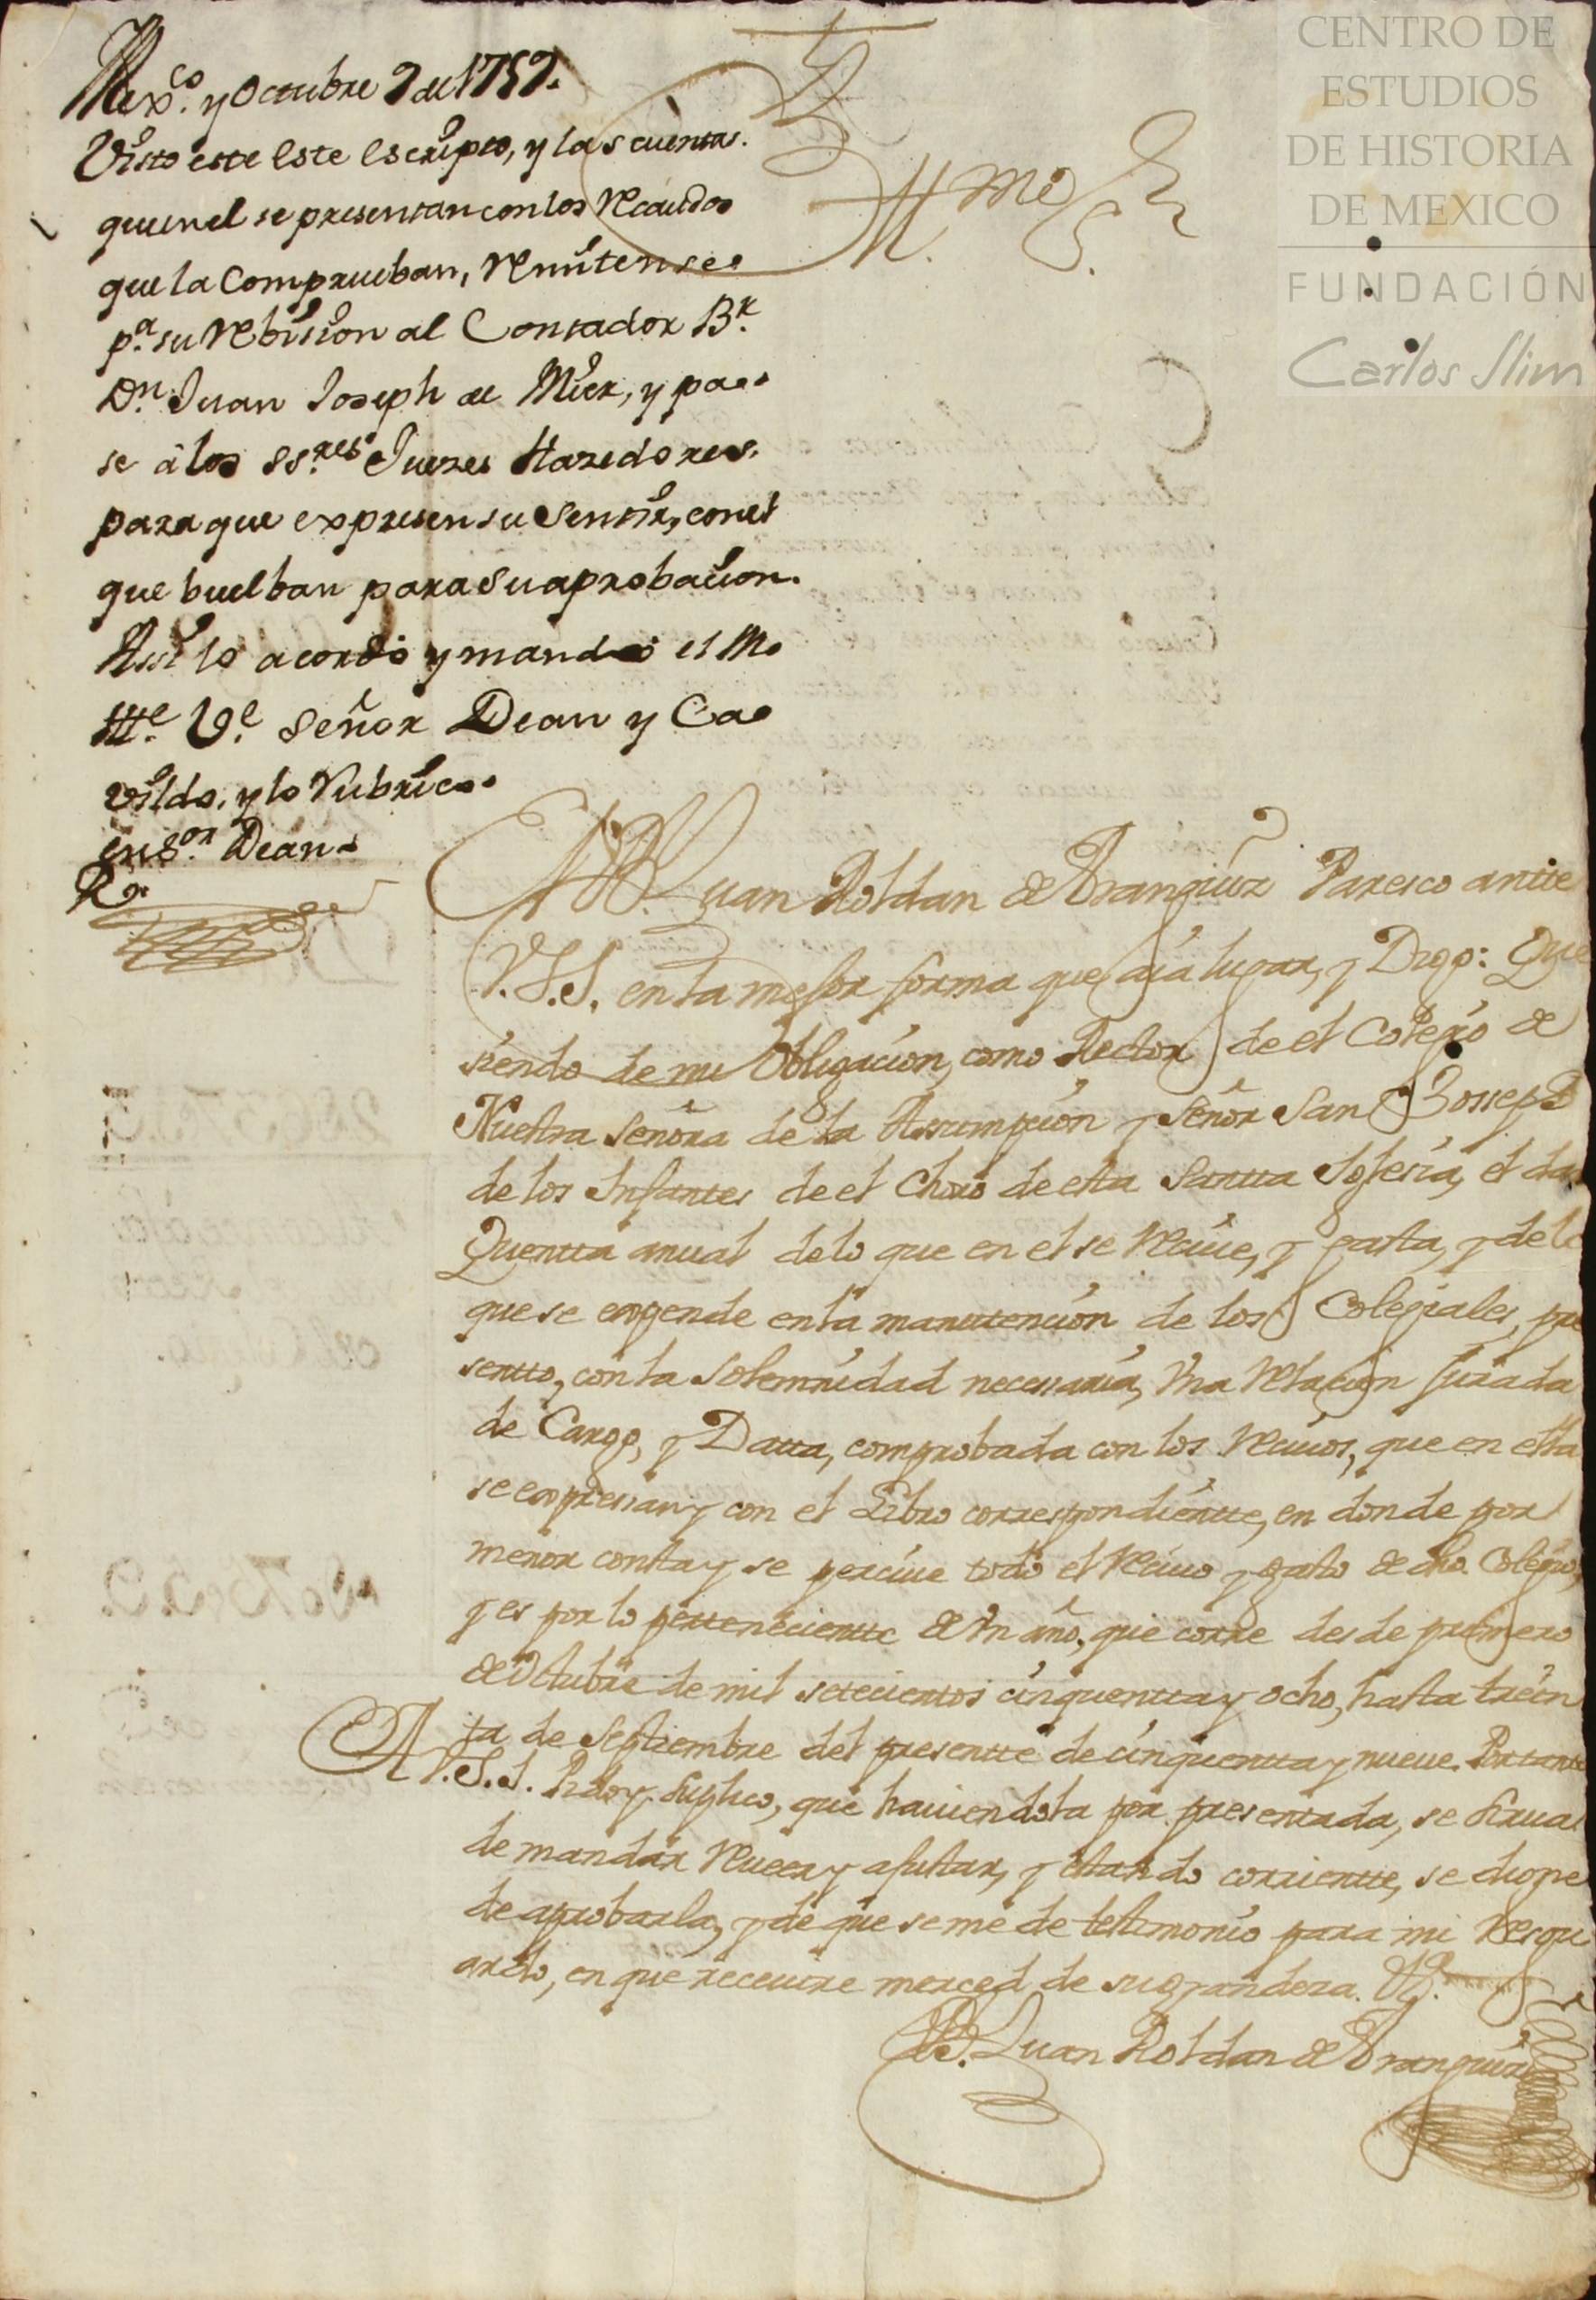 Mex.co y Octubre 9 de 1759.
Visto este Este Escripto, y las cuentas.
que en el se presentan con los Recaudos
que la Comprueban, Remitense
p.a su Rebision al Contador B.r
D.n Juan Joseph de Mier, y pa-
se â los SS.res Juezes Hazedores.
para que expresen su Sentir, con el
que buelban para su aprobacion.
Assi lo acordò y mandò el M.
Ill.e V.e Señor Dean y Ca-
vildo, y lo Rubricò
el S.or Dean.
Yll.mo S.or
CENTRO DE
ESTUDIOS
DE HISTORIA
DE MEXICO
FUNDACIÓN
Carlos Slim
Juan Roldan de Aranguiz Paresco antte
V.S.I. en la mejor forma que aia lugar, y Digo: Que
siendo de mi Obligacion, como Rector de el Colegio de
Nuestra Señora de la Assumpcion y Señor San Josseph
de los Infantes de el Choro de esta Santta Iglesia, el dar
Quentta anual de lo que en el se Reciue, y gasta, y de lo
que se expende en la manuttencion de los Colegiales, pre
sentto, con la Solemnidad necessaria, Vna Relacion Jurada
de Cargo, y Datta, comprobada con los Reciuos, que en ella
se expressan, y con el Libro correspondientte, en donde por
menor consta y se perciue todo el Reciuo y gasto de dho. Colegio,
y es por lo perttenecientte de Vn año, que corre desde primero
de Octubre de mil setecientos cinquentta y ocho, hasta trein
ta de Septiembre del presentte de cinquentta y nueue. Por tanto
A V.S.I. Pido y Suplico, que hauiendola por presentada, se sirua
de mandar Rever y ajustar, y estando corrientte, se digne
de aprobarla, y de que se me de testimonio para mi Resgu
ardo, en que receuire merced de su grandeza. V.a
Juan Roldan de Aranguiz